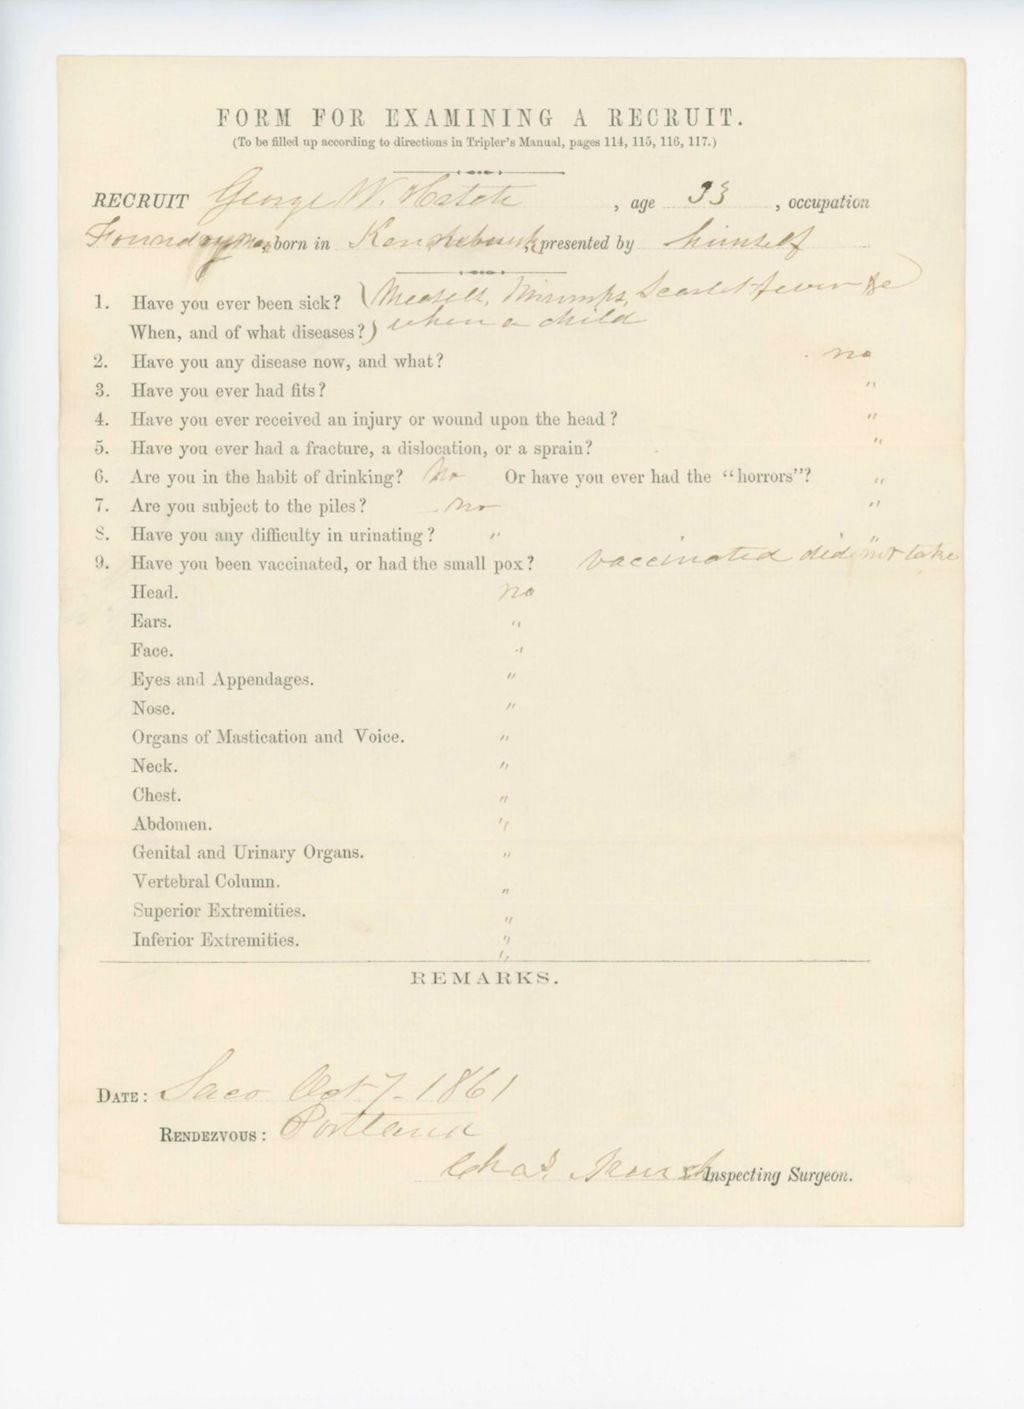 FORM FOR EXAMINING A RECRUIT.
(To be filled up according to directions in Tripler's Manual, pages 114, 115, 116, 117.)
RECRUIT George W. , age 33 , occupation
Foundryman, born in Kennebunk, presented by himself
1. Have you ever been sick? Measels, Mumps, Scarlet fever &c
When, and of what diseases? when a child
2. Have you any disease now, and what? no
3. Have you ever had fits? "
4. Have you ever received an injury or wound upon the head? "
5. Have you ever had a fracture, a dislocation, or a sprain? "
6. Are you in the habit of drinking? No Or have you ever had the "horrors"? "
7. Are you subject to the piles? no "
8. Have you any difficulty in urinating? " "
9. Have you been vaccinated, or had the small pox? vaccinated did not take
Head. no
Ears. "
Face. "
Eyes and Appendages. "
Nose. "
Organs of Mastication and Voice. "
Neck. "
Chest. "
Abdomen. "
Genital and Urinary Organs. "
Vertebral Column. "
Superior Extremities. "
Inferior Extremities. "
"
REMARKS.
DATE: Saco Oct 7 - 1861
RENDEZVOUS: Portland
Chas. Inspecting Surgeon.